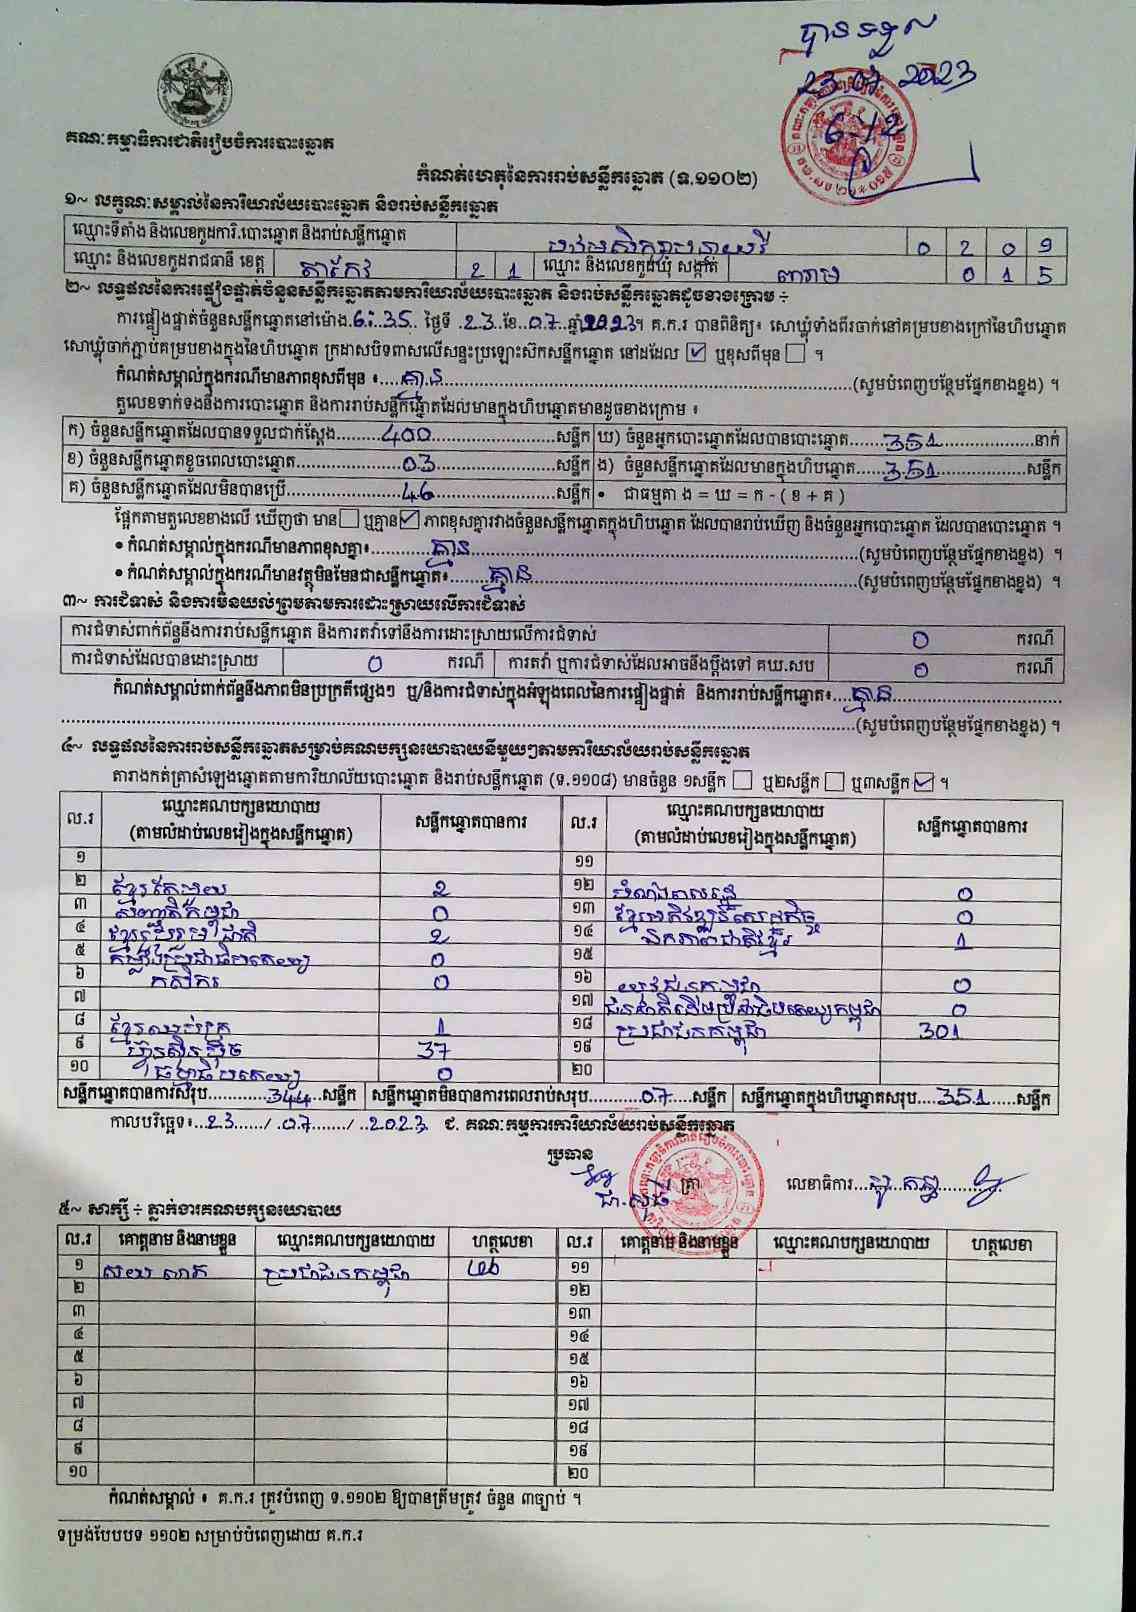 បានទទួល
23 07 2023
គណៈកម្មាធិការជាតិរៀបចំការបោះឆ្នោត
កំណត់ហេតុនៃការរាប់សន្លឹកឆ្នោត (ទ.១១០២)
១~ លក្ខណៈសម្គាល់នៃការិយាល័យបោះឆ្នោត និងរាប់សន្លឹកឆ្នោត
ឈ្មោះទីតាំង និងលេខកូដការិ.បោះឆ្នោត និងរាប់សន្លឹកឆ្នោត 0 2 0 9
ឈ្មោះ និងលេខកូដរាជធានី ខេត្ត តាកែវ 2 1 ឈ្មោះ និងលេខកូដឃុំ សង្កាត់ 0 1 5
២~ លទ្ធផលនៃការផ្ទៀងផ្ទាត់ចំនួនសន្លឹកឆ្នោតតាមការិយាល័យបោះឆ្នោត និងរាប់សន្លឹកឆ្នោតដូចខាងក្រោម ÷
ការផ្ទៀងផ្ទាត់ចំនួនសន្លឹកឆ្នោតនៅម៉ោង.6:35.. ថ្ងៃទី .23.ខែ..07..ឆ្នាំ2023។ គ.ក.រ បានពិនិត្យ៖ សោឃ្លុំទាំងពីរចាក់នៅគម្របខាងក្រៅនៃហិបឆ្នោត
សោឃ្លុំចាក់ភ្ជាប់គម្របខាងក្នុងនៃហិបឆ្នោត ក្រដាសបិទពាសលើសន្ទះប្រឡោះស៊កសន្លឹកឆ្នោត នៅដដែល ☑ ឬខុសពីមុន ☐ ។
កំណត់សម្គាល់ក្នុងករណីមានភាពខុសពីមុន ៖....គ្មាន....(សូមបំពេញបន្ថែមផ្នែកខាងខ្នង) ។
តួលេខទាក់ទងនឹងការបោះឆ្នោត និងការរាប់សន្លឹកឆ្នោតដែលមានក្នុងហិបឆ្នោតមានដូចខាងក្រោម ៖
ក) ចំនួនសន្លឹកឆ្នោតដែលបានទទួលជាក់ស្តែង.........400.........សន្លឹក ឃ) ចំនួនអ្នកបោះឆ្នោតដែលបានបោះឆ្នោត.......351.......នាក់
ខ) ចំនួនសន្លឹកឆ្នោតខូចពេលបោះឆ្នោត.........03.........សន្លឹក ង) ចំនួនសន្លឹកឆ្នោតដែលមានក្នុងហិបឆ្នោត......351.......សន្លឹក
គ) ចំនួនសន្លឹកឆ្នោតដែលមិនបានប្រើ.........46.........សន្លឹក • ជាធម្មតា ង = ឃ = ក - ( ខ + គ )
ផ្អែកតាមតួលេខខាងលើ ឃើញថា មាន☐ ឬគ្មាន☑ ភាពខុសគ្នារវាងចំនួនសន្លឹកឆ្នោតក្នុងហិបឆ្នោត ដែលបានរាប់ឃើញ និងចំនួនអ្នកបោះឆ្នោត ដែលបានបោះឆ្នោត ។
• កំណត់សម្គាល់ក្នុងករណីមានភាពខុសគ្នា៖.........គ្មាន.........(សូមបំពេញបន្ថែមផ្នែកខាងខ្នង) ។
• កំណត់សម្គាល់ក្នុងករណីមានវត្ថុមិនមែនជាសន្លឹកឆ្នោត៖.......គ្មាន.........(សូមបំពេញបន្ថែមផ្នែកខាងខ្នង) ។
៣~ ការជំទាស់ និងការមិនយល់ព្រមតាមការដោះស្រាយលើការជំទាស់
ការជំទាស់ពាក់ព័ន្ធនឹងការរាប់សន្លឹកឆ្នោត និងការតវ៉ាទៅនឹងការដោះស្រាយលើការជំទាស់ 0 ករណី
ការជំទាស់ដែលបានដោះស្រាយ 0 ករណី ការតវ៉ា ឬការជំទាស់ដែលអាចនឹងប្តឹងទៅ គឃ.សប 0 ករណី
កំណត់សម្គាល់ពាក់ព័ន្ធនឹងភាពមិនប្រក្រតីផ្សេងៗ ឬ/និងការជំទាស់ក្នុងអំឡុងពេលនៃការផ្ទៀងផ្ទាត់ និងការរាប់សន្លឹកឆ្នោត៖....គ្មាន.........
.........(សូមបំពេញបន្ថែមផ្នែកខាងខ្នង) ។
៤~ លទ្ធផលនៃការរាប់សន្លឹកឆ្នោតសម្រាប់គណបក្សនយោបាយនីមួយៗតាមការិយាល័យរាប់សន្លឹកឆ្នោត
តារាងកត់ត្រាសំឡេងឆ្នោតតាមការិយាល័យបោះឆ្នោត និងរាប់សន្លឹកឆ្នោត (ទ.១១០៨) មានចំនួន ១សន្លឹក ☐ ឬ២សន្លឹក ☐ ឬ៣សន្លឹក ☑ ។
ល.រ ឈ្មោះគណបក្សនយោបាយ (តាមលំដាប់លេខរៀងក្នុងសន្លឹកឆ្នោត) សន្លឹកឆ្នោតបានការ ល.រ ឈ្មោះគណបក្សនយោបាយ (តាមលំដាប់លេខរៀងក្នុងសន្លឹកឆ្នោត) សន្លឹកឆ្នោតបានការ
១ ១១
២ 2 ១២ 0
៣ សញ្ជាតិកម្ពុជា 0 ១៣ ខ្មែរអភិវឌ្ឍន៍សេដ្ឋកិច្ច 0
៤ ខ្មែររួបរួមជាតិ 2 ១៤ ឯកភាពជាតិខ្មែរ 1
៥ កម្លាំងប្រជាធិបតេយ្យ 0 ១៥
៦ កសិករ 0 ១៦ យុវជនកម្ពុជា 0
៧ ១៧ ជនជាតិដើមប្រជាធិបតេយ្យកម្ពុជា 0
៨ ខ្មែរឈប់ក្រ 1 ១៨ ប្រជាជនកម្ពុជា 301
៩ ហ៊្វុនស៊ិនប៉ិច 37 ១៩
១០ ធម្មាធិបតេយ្យ 0 ២០
សន្លឹកឆ្នោតបានការសរុប............344...សន្លឹក សន្លឹកឆ្នោតមិនបានការពេលរាប់សរុប..........07....សន្លឹក សន្លឹកឆ្នោតក្នុងហិបឆ្នោតសរុប....351......សន្លឹក
កាលបរិច្ឆេទ៖..23....../.07......./ ..2023. ជ. គណៈកម្មការការិយាល័យរាប់សន្លឹកឆ្នោត
ប្រធាន
ត្រា លេខាធិការ
៥~ សាក្សី ÷ ភ្នាក់ងារគណបក្សនយោបាយ
ល.រ គោត្តនាម និងនាមខ្លួន ឈ្មោះគណបក្សនយោបាយ ហត្ថលេខា ល.រ គោត្តនាម និងនាមខ្លួន ឈ្មោះគណបក្សនយោបាយ ហត្ថលេខា
១ ប្រជាជនកម្ពុជា ១១
២ ១២
៣ ១៣
៤ ១៤
៥ ១៥
៦ ១៦
៧ ១៧
៨ ១៨
៩ ១៩
១០ ២០
កំណត់សម្គាល់ ៖ គ.ក.រ ត្រូវបំពេញ ទ.១១០២ ឱ្យបានត្រឹមត្រូវ ចំនួន ៣ច្បាប់ ។
ទម្រង់បែបបទ ១១០២ សម្រាប់បំពេញដោយ គ.ក.រ